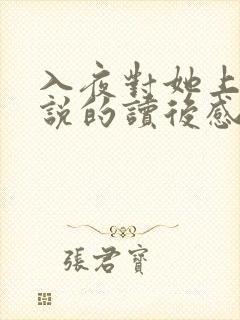 入夜對她上
說的讀後感
張君寶